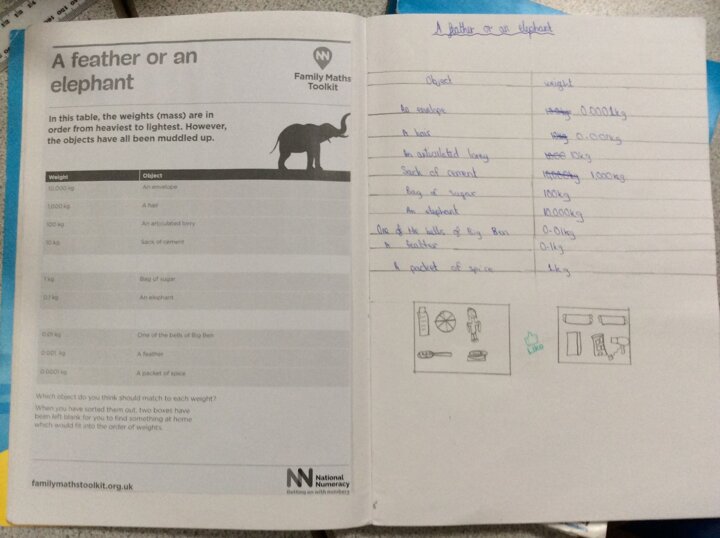 A feather or an
elephant
Family Maths
Toolkit
In this table, the weights (mass) are in
order from heaviest to lightest. However,
the objects have all been muddled up.
Weight Object
10,000 kg An envelope
1,000 kg A hair
100 kg An articulated lorry
10 kg Sack of cement
1 kg Bag of sugar
0.1 kg An elephant
0.01 kg One of the bells of Big Ben
0.001 kg A feather
0.0001 kg A packet of spice
Which object do you think should match to each weight?
When you have sorted them out, two boxes have
been left blank for you to find something at home
which would fit into the order of weights.
familymathstoolkit.org.uk
National
Numeracy
Getting on with numbers
A feather or an elephant
Object weight
An envelope 0.0001kg
A hair 0.001kg
An articulated lorry 10kg
Sack of cement 1,000kg
Bag of sugar 100kg
An elephant 10,000kg
One of the bells of Big Ben 0.01kg
A feather 0.1kg
A packet of spice 1kg
Like